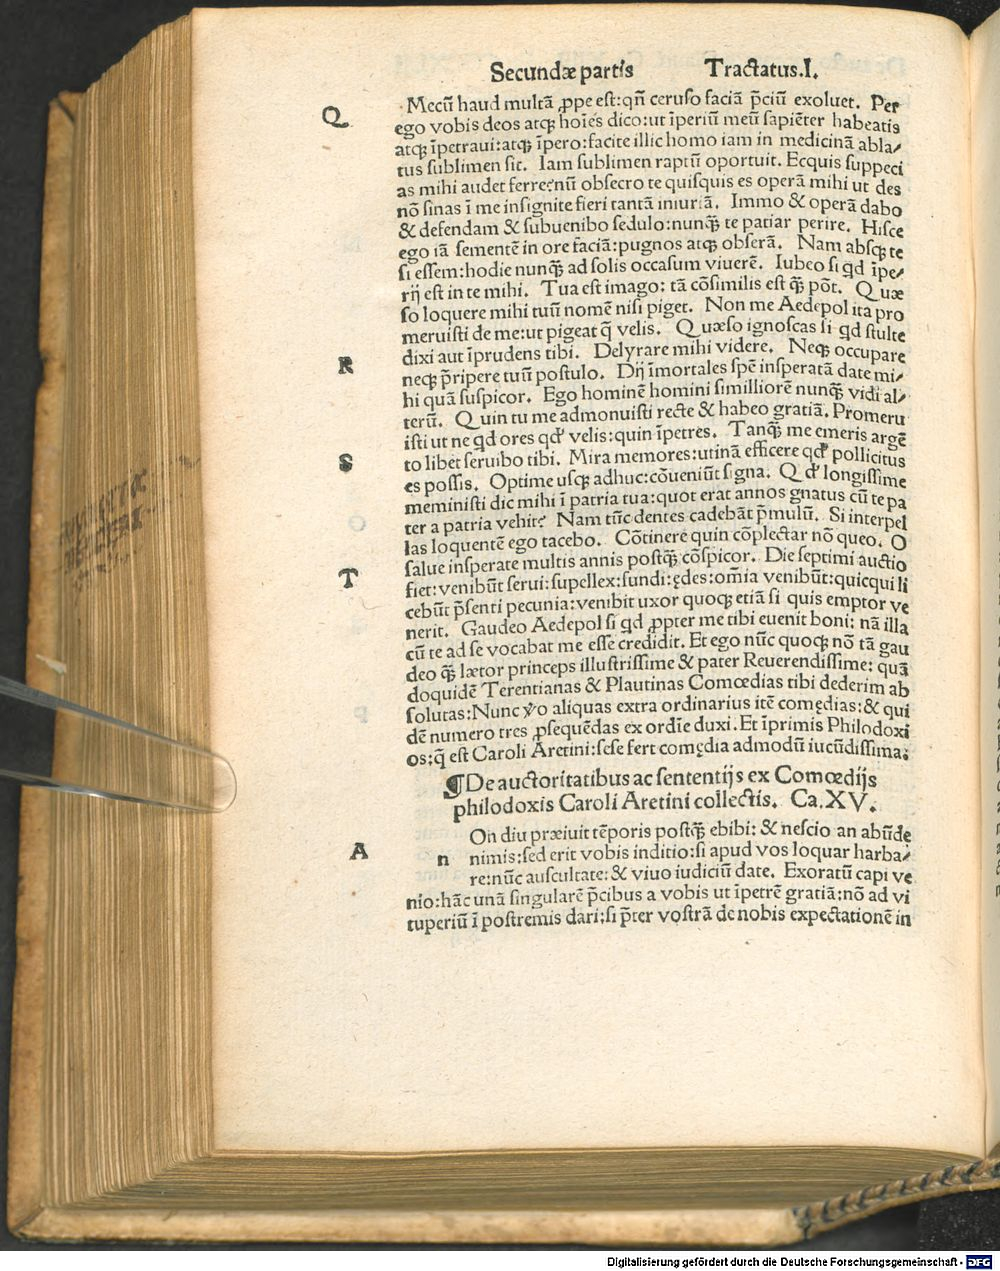 Secundæ partis Tractatus.I.
Q
Mecū haud multā ꝓpe est:qñ ceruso faciā p̄ciū exoluet. Per
ego vobis deos atqꝫ hoīes dico:ut īperiū meū sapiēter habeatis
atqꝫ īpetraui:atqꝫ īpero:facite illic homo iam in medicinā abla⸗
tus sublimen sit. Iam sublimen raptū oportuit. Ecquis suppeci
as mihi audet ferre?nū obsecro te quisquis es operā mihi ut des
nō sinas ī me insignite fieri tantā iniuriā. Immo & operā dabo
& defendam & subuenibo sedulo:nunqꝫ̄ te patiar perire. Hisce
ego iā sementē in ore faciā:pugnos atqꝫ obserā. Nam absqꝫ te
si essem:hodie nunqꝫ̄ ad solis occasum viuerē. Iubeo si qd īpe⸗
rij est in te mihi. Tua est imago: tā cōsimilis est qꝫ̄ pōt. Quæ
so loquere mihi tuū nomē nisi piget. Non me Aedepol ita pro
meruisti de me:ut pigeat q̄ velis. Quæso ignoscas si qd stulte
dixi aut īprudens tibi. Delyrare mihi videre. Neqꝫ occupare
R
neqꝫ p̄ripere tuū postulo. Dij īmortales spē insperatā date mi⸗
hi quā suspicor. Ego hominē homini similliorē nunqꝫ̄ vidi al⸗
terū. Quin tu me admonuisti recte & habeo gratiā. Promeru
isti ut ne qd ores qd' velis:quin īpetres. Tanqꝫ̄ me emeris argē
S
to libēt seruibo tibi. Mira memores:utinā efficere qd' pollicitus
es possis. Optime usqꝫ adhuc:cōueniūt signa. Qd' longissime
meministi dic mihi ī patria tua:quot erat annos gnatus cū te pa
ter a patria vehit? Nam tūc dentes cadebāt p̄mulū. Si interpel
las loquentē ego tacebo. Cōtinere quin cōplectar nō queo. O
salue insperate multis annis postqꝫ̄ cōspicor. Die septimi auctio
T
fiet:venibūt serui:supellex:fundi:ędes:om̄ia venibūt:quicqui li
cebūt p̄senti pecunia:venibit uxor quoqꝫ etiā si quis emptor ve
nerit. Gaudeo Aedepol si qd ꝓpter me tibi euenit boni: nā illa
cū te ad se vocabat me esse credidit. Et ego nūc quoqꝫ nō tā gau
deo qꝫ̄ lætor princeps illustrissime & pater Reuerendissime: quā
doquidē Terentianas & Plautinas Comœdias tibi dederim ab
solutas:Nunc ꝟo aliquas extra ordinarius itē comędias:& qui
dē numero tres ꝓsequēdas ex ordīe duxi. Et īprimis Philodoxi
os:q̄ est Caroli Aretini:sese fert comędia admodū iucūdissima:
¶De auctoritatibus ac sententijs ex Comœdijs
philodoxis Caroli Aretini collectis. Ca.XV.
On diu præiuit tēporis postqꝫ̄ ebibi: & nescio an abūde
A
n nimis:sed erit vobis inditio:si apud vos loquar harba⸗
re:nūc auscultate:& viuo iudiciū date. Exoratū capi ve
nio:hāc unā singularē p̄cibus a vobis ut īpetrē gratiā:nō ad vi
tuperiū ī postremis dari:si p̄ter vostrā de nobis expectationē in
Digitalisierung gefördert durch die Deutsche Forschungsgemeinschaft - DFG